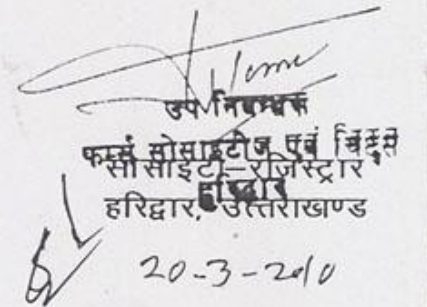 उप निबन्धक
फर्म्स सोसाइटीज एवं चिट्स
सोसाइटी-रजिस्ट्रार
हरिद्वार
हरिद्वार, उत्तराखण्ड
20-3-2010